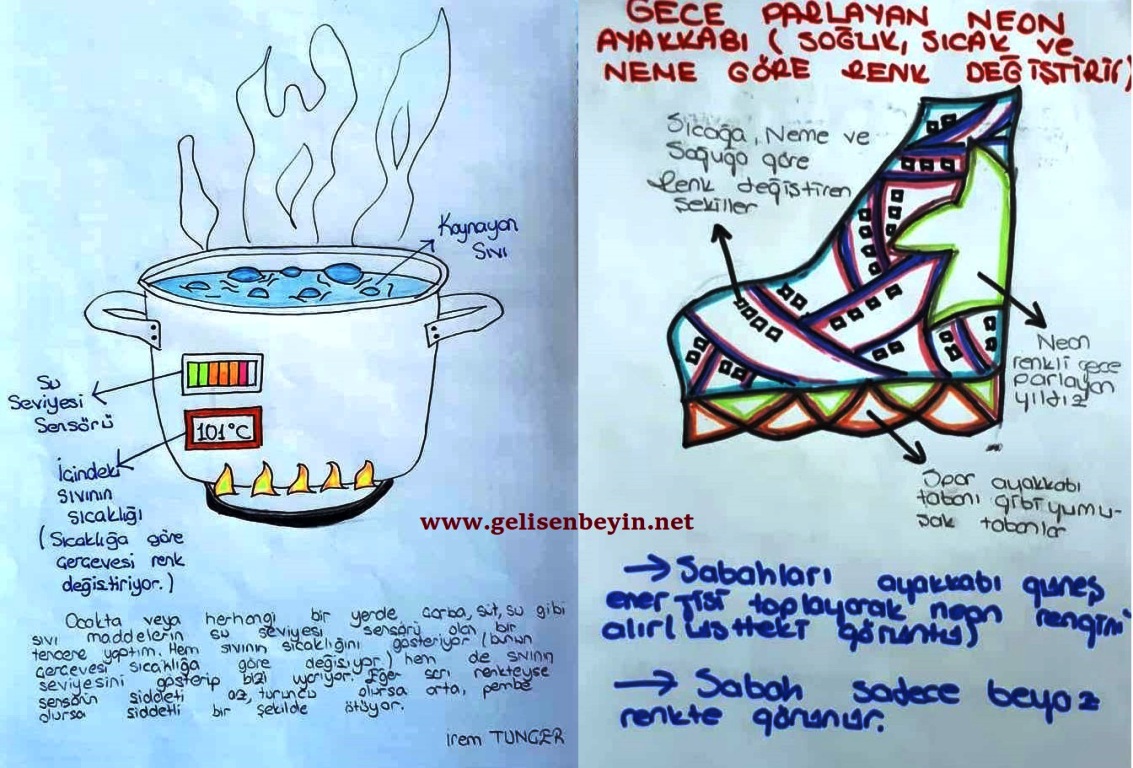 Kaynayan
Sıvı
Su
Seviyesi
Sensörü
101°C
İçindeki
sıvının
sıcaklığı
(Sıcaklığa göre
çerçevesi renk
değiştiriyor.)
Ocakta veya herhangi bir yerde, çorba, süt, su gibi
sıvı maddelerin su seviyesi sensörü olan bir
tencere yaptım. Hem sıvının sıcaklığını gösteriyor (bunun
çerçevesi sıcaklığa göre değişiyor.) hem de sıvının
seviyesini gösterip bizi uyarıyor. Eğer sarı renkteyse
sensörün şiddeti az, turuncu olursa orta, pembe
olursa şiddetli bir şekilde ötüyor.
İrem TUNGER
www.gelisenbeyin.net
GECE PARLAYAN NEON
AYAKKABI ( SOĞUK, SICAK ve
NEME GÖRE RENK DEĞİŞTİRİR)
Sıcağa, Neme ve
Soğuğa göre
Renk değiştiren
şekiller
Neon
renkli gece
parlayan
yıldız
Spor ayakkabı
tabanı gibi yumu-
şak tabanlar
→ Sabahları ayakkabı güneş
enerjisi toplayarak neon rengini
alır( üstteki görüntü)
→ Sabah sadece beyaz
renkte görünür.